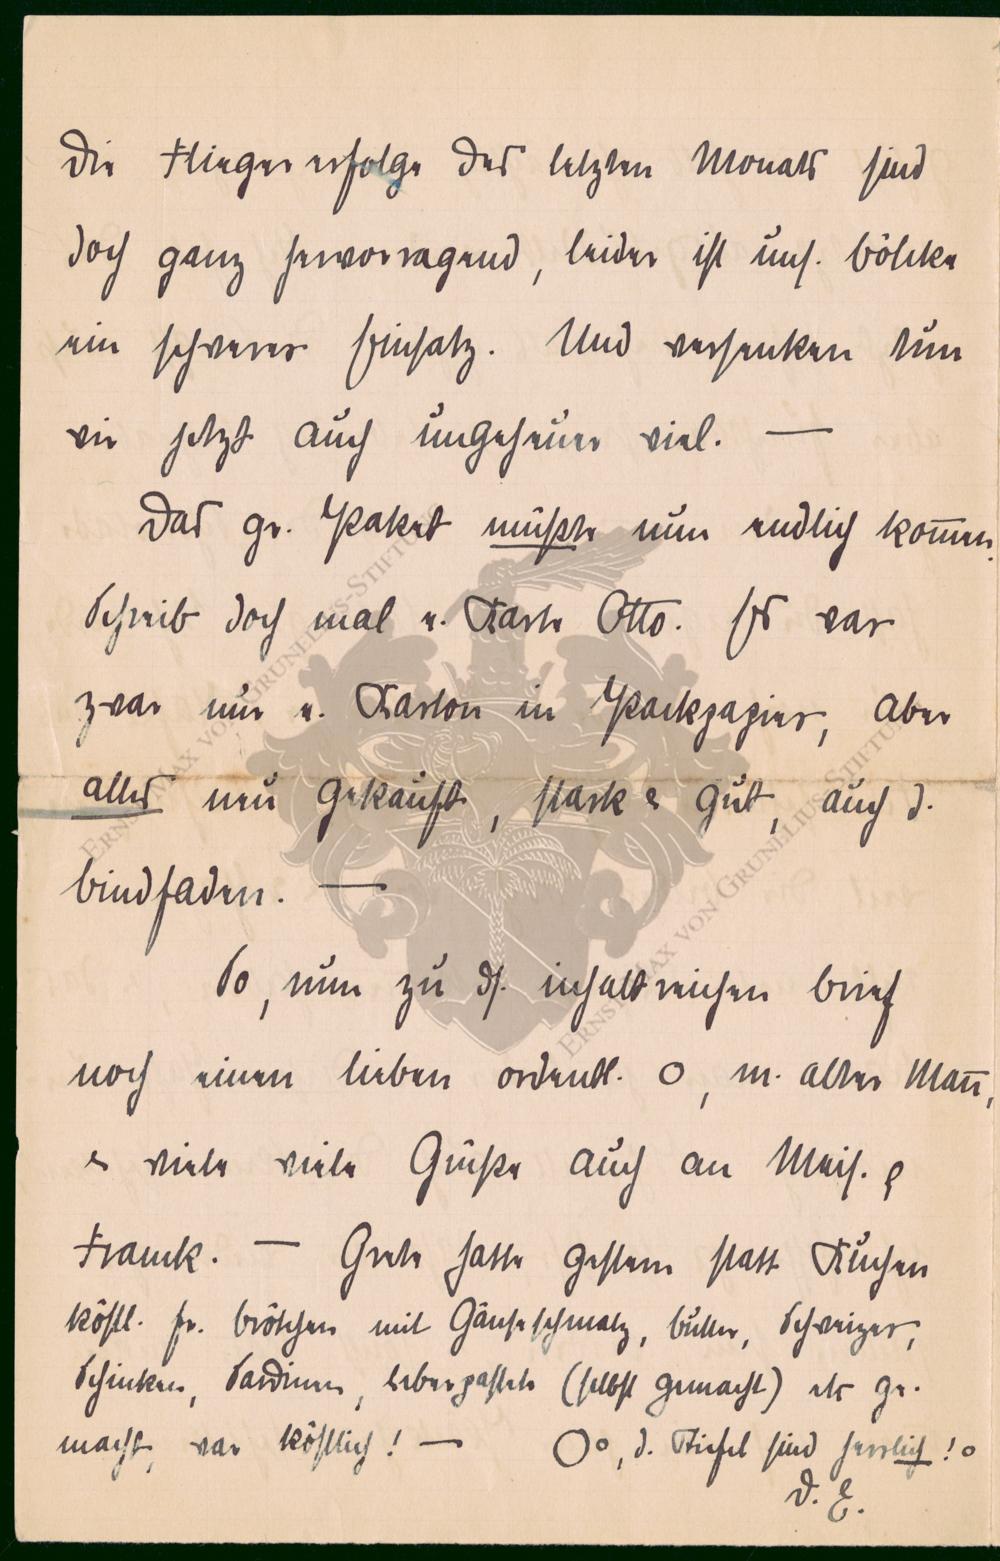 Die Fliegererfolge des letzten Monats sind
doch ganz hervorragend, leider ist uns. Bölcke
ein schwerer Einsatz. Und versenken tun
wir jetzt auch ungeheuer viel. —
Das gr. Paket müßte nun endlich kom̅en.
Schreib doch mal e. Karte Otto. Es war
zwar nur e. Karton in Packpapier, aber
alles neu gekauft, stark & gut, auch d.
Bindfaden. —
So, nun zu ds. inhaltreichen Brief
noch einen lieben ordentl. O, m. alter Man̅,
& viele viele Grüße auch an Meis. &
Franck. — Grete hatte gestern statt Kuchen
köstl. fr. Brötchen mit Gänseschmalz, Butter, Schweizer,
Schinken, Sardinen, Leberpastete (selbst gemacht) etc ge-
macht, war köstlich! — Oo, d. Stiefel sind herrlich! o
D. E.
ERNST MAX VON GRUNELIUS-STIFTUNG
ERNST MAX VON GRUNELIUS-STIFTUNG